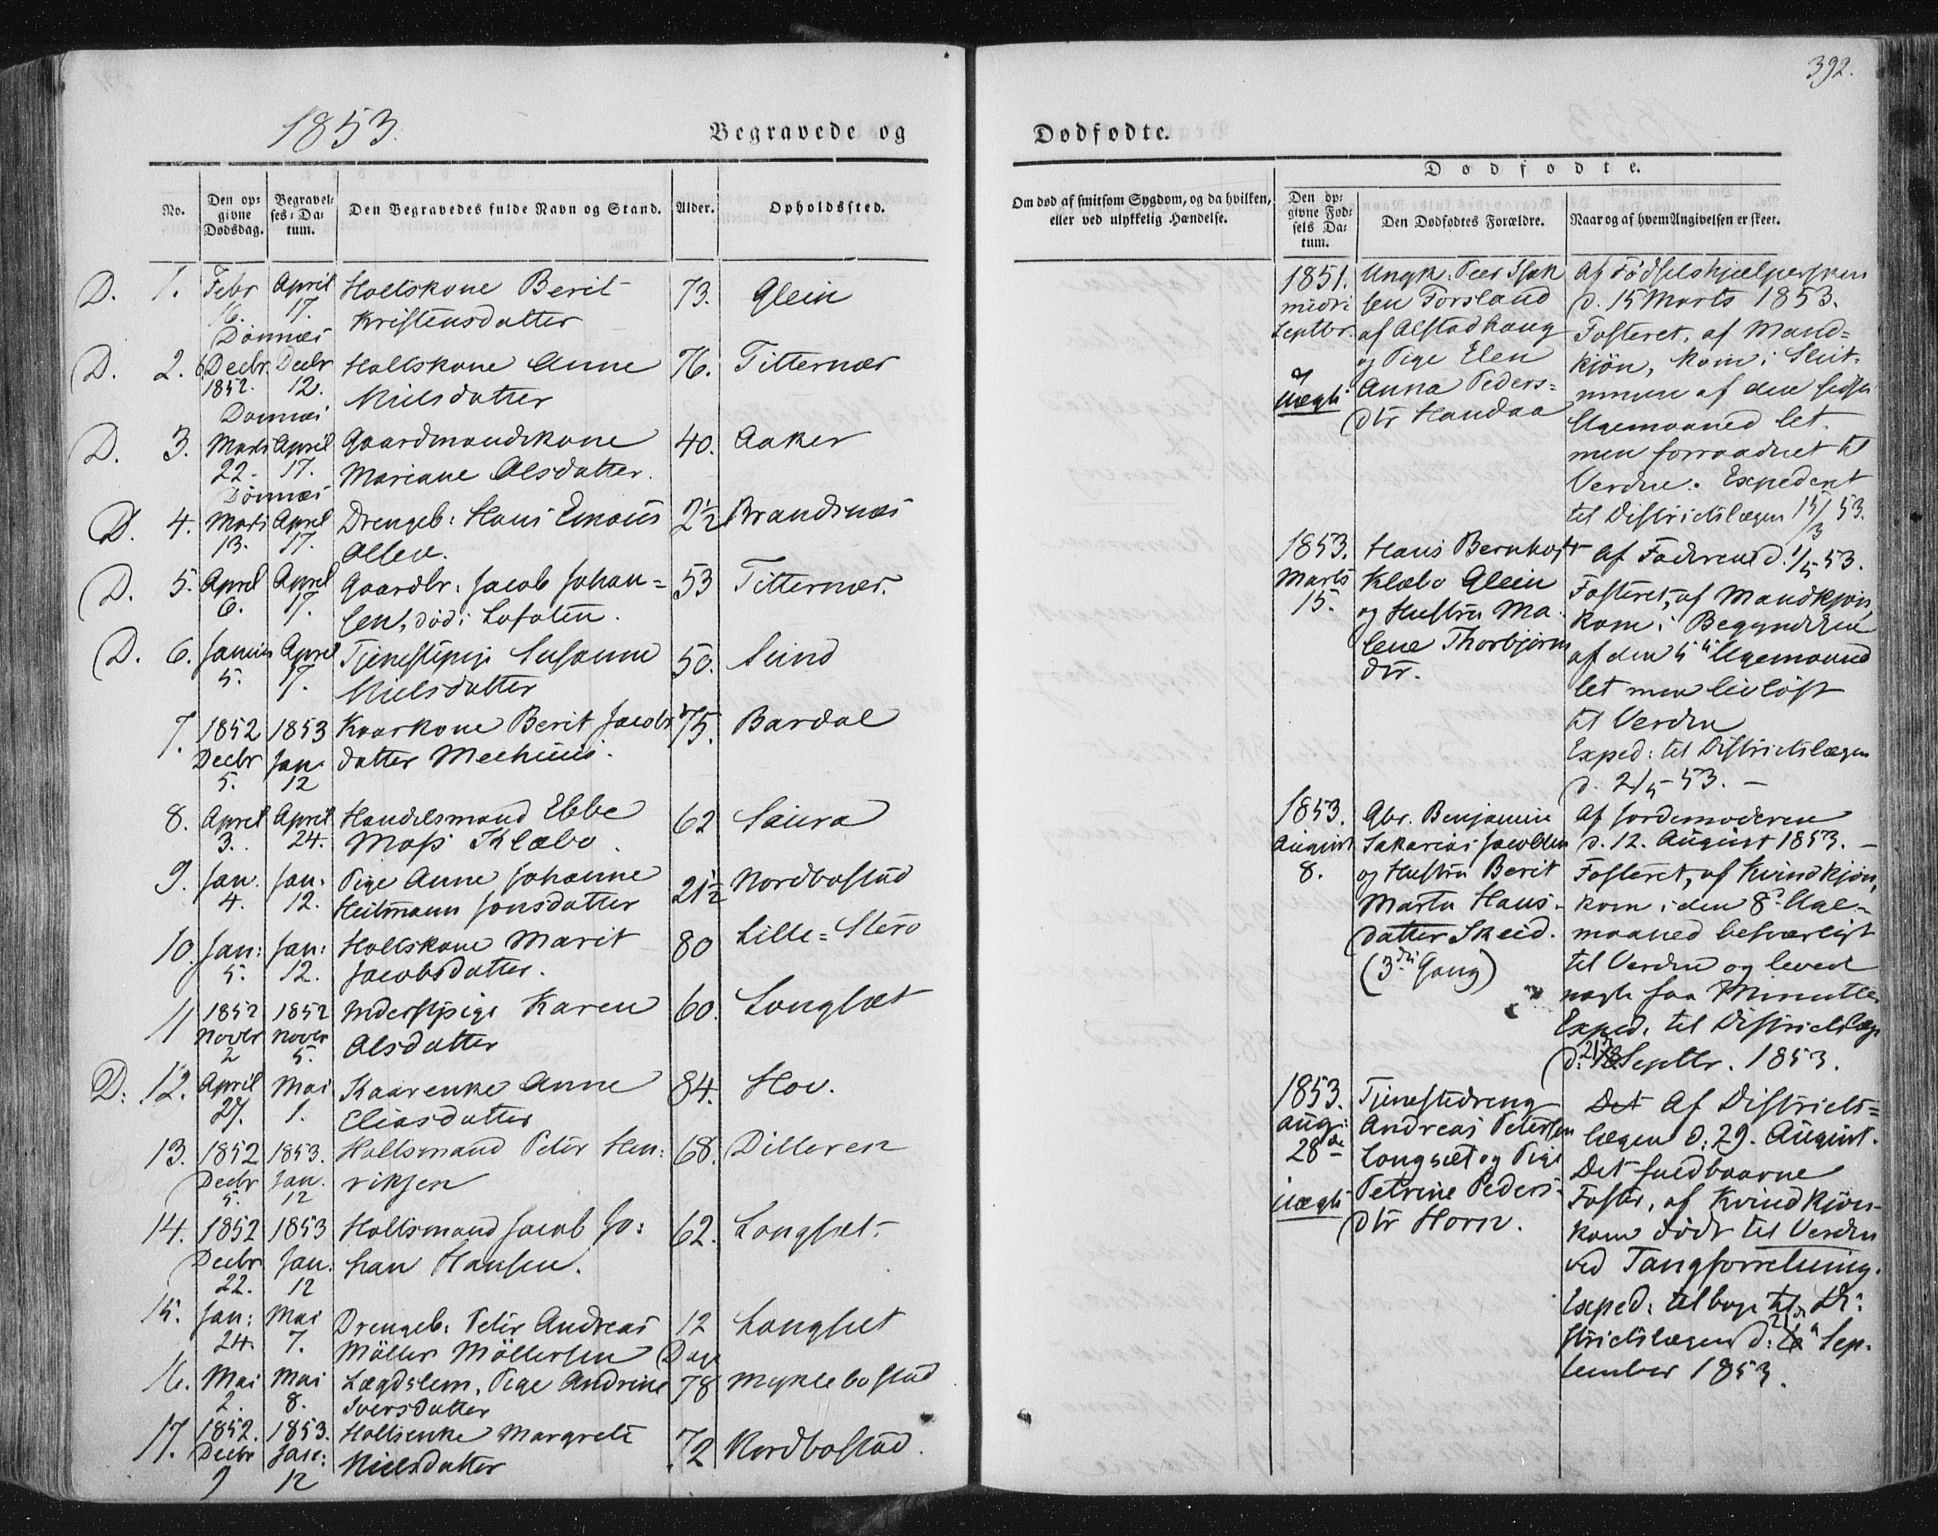 392.
1853.
Begravede og
Dødfødte.
No.
Den opgivne Dødsdag.
Begravelses-Datum.
Den Begravedes fulde Navn og Stand.
Alder.
Opholdssted.
D. 1. Febr April Holtskone Berit 73. Glein
16. 17. Kristensdatter
Dönnæs
D. 2. 6 Decbr. Decbr Holtskone Anne 76. Titternæs
1852. 12. Nielsdatter
Dönnæs
D. 3. Marts April Gaardmandskone 40. Aaker
22. 17. Mariane Olsdatter.
Dönnæs
D. 4. Marts April Drengeb: Hans Emaus 2½ Brandsnæs
13. 17. Olsen.
D. 5. April April Gaardbr: Jacob Johan= 53 Titternæs.
6. 17. sen, död i Lofoten.
D. 6. Januar April Tjenestepige Susanna 50. Sund
5. 17. Nielsdatter
7. 1852 1853 Kaarkone Berit Jacobs 75. Bardal
Decbr Jan. datter Mechuus.
5. 12
8. April April Handelsmand Ebbe 62 Saura
3. 24. Moss Klæbo.
9. Jan. Jan. Pige Anne Johanne 21½ Nordbostad
4. 12. Heitmann Jonsdatter
10. Jan: Jan: Holtskone Marit 80 Lille=Sterö
5. 12. Jacobsdatter.
11 1852 1852 Inderstpige Karen 60. Langset
Novbr Novbr Olsdatter
2 5.
D: 12. April Mai Kaarenke Anne 84. Hov.
27. 1. Eliasdatter
13. 1852 1853. Holtsmand Peter Hen: 68. Dilleren
Decbr Jan. riksen
5. 12
14. 1852 1853 Holtsmand Jacob Jo: 62. Langset
Decbr Jan. han Hansen.
22. 12
15. Jan: Mai Drengeb: Peter Andreas 12 Langset
24. 7. Möller Möllersen Dage
16. Mai Mai Lægdslem, Pige Andrine 78 Myklebostad
2. 8. Iversdatter
17. 1852. 1853. Holtsenke Margrete 72 Nordbostad.
Decbr Jan: Nielsdatter
9 12
Om død af smitsom Sygdom, og da hvilken,
eller ved ulykkelig Hændelse.
Dødfødte.
Den opgivne Fødsels Datum.
Den Dødfødtes Forældre.
Naar og af hvem Angivelsen er skeet.
1851. Ungk. Peer Isak Af Födselshjelpersken
midt i sen Forsland d. 15 Marts 1853.
Septbr. af Alstadhaug Fosteret, af Mand=
og Pige Elen kjön, kom i Slut=
Anna Peders= ningen af den
uægte dtr Handaa Ugemaaned let.
men forraadnet til
Verden. Expederet
til Districtslægen 15/3 53.
1853. Hans Bernhoft Af Faderen d. 1/5 53.
Marts Klæbo Glein Fosteret, af Mandkjön,
15. og Hustru Ma= kom i Begyndelsen
lene Thorbjörns af den 5te Ugemaaned
dtr. let men livlöst
til Verden
Exped: til Districtslægen
d. 2/5 53. —
1853. Gbr. Benjamin Af Jordemoderen
August Sakarias Jacobsen d. 12. August 1853. —
8. og Hustru Berit Fosteret, af Kvindkjön,
Marta Hans= kom i den 8de Uge=
datter Skeid. maaned besværligt
(3die Gang) til Verden og levede
nogle faa Minutter.
Exped. til Districtslæg.
d. Septbr. 1853.
1853. Tjenestedreng Det Af Districts=
Aug: Andreas Petersen lægen d: 29. August.
28de Langset og Pige Det fuldbaarne
uægte Petrine Peders= Foster, af Kvindkjön
dtr Horn. kom dödt til Verden
ved Tangforretning.
Exped: tilbage til Di=
strictslægen d: Sep=
tember 1853.